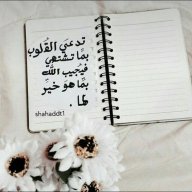 تدعي القلوب
بما تشتهي
فيجيب الله
بما هو خير
لها .
shahaddt1